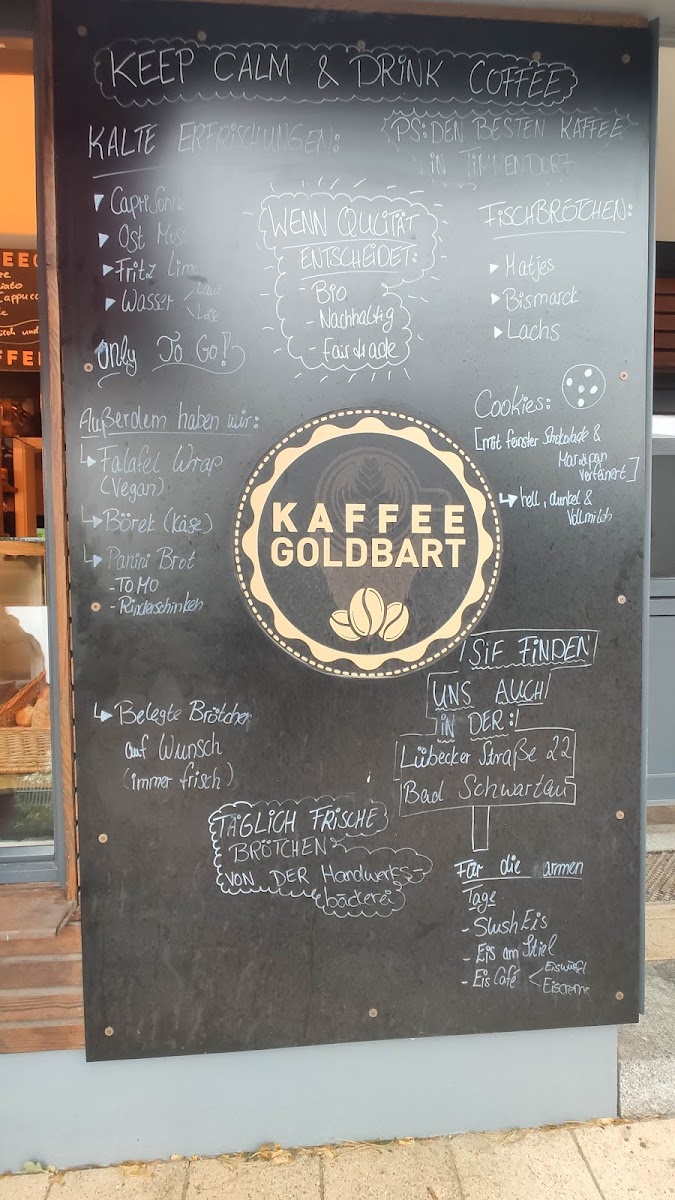 KEEP CALM & DRINK COFFEE
KALTE ERFRISCHUNGEN:
Capri Sonne
Ost Most
Fritz Limo
Wasser < Laut
Leise
Only To Go!
PS: DEN BESTEN KAFFEE
IN TIMMENDORF
WENN QULITÄT
ENTSCHEIDET:
- Bio
- Nachhaltig
- Fairtrade
FISCHBRÖTCHEN:
Matjes
Bismarck
Lachs
Außerdem haben wir:
Falafel Wrap
(Vegan)
Börek (Käse)
Panini Brot
- TOMO
- Rinderschinken
Belegte Brötchen
auf Wunsch
(immer frisch)
KAFFEE
GOLDBART
Cookies:
[mit feinster Shokolade &
Marzipan
verfeinert]
hell, dunkel &
Vollmilch
SIE FINDEN
UNS AUCH
IN DER:
Lübecker Straße 22
Bad Schwartau
TÄGLICH FRISCHE
BRÖTCHEN
VON DER Handwerks-
bäckerei
Für die warmen
Tage
- Slush Eis
- Eis am Stiel
- Eis Café < Eiswürfel
Eiscreme